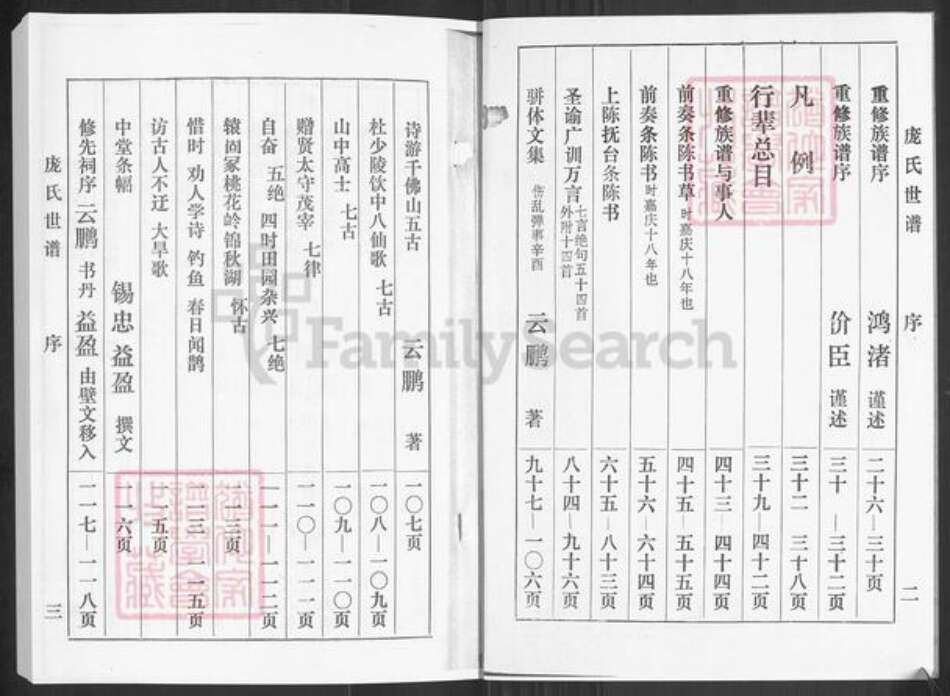 庞氏世谱 序 二
重修族谱序 鸿渚 谨述 二十六—三十页
重修族谱序 价臣 谨述 三十—三十二页
凡例 三十二—三十八页
行辈总目 三十九—四十二页
重修族谱与事人 四十三—四十四页
前奏条陈书草 时嘉庆十八年也 四十五—五十五页
前奏条陈书 时嘉庆十八年也 五十六—六十四页
上陈抚台条陈书 六十五—八十三页
圣谕广训万言 七言绝句五十四首 外附十四首 八十四—九十六页
骈体文集 伤乱弹事辛酉 云鹏 著 九十七—一〇六页
诗游千佛山五古 云鹏 著 一〇七页
杜少陵饮中八仙歌 七古 一〇八—一〇九页
山中高士 七古 一〇九—一一〇页
赠贤太守茂宰 七律 一一〇—一一一页
自奋 五绝 四时田园杂兴 七绝 一一一—一一二页
辕固冢桃花岭锦秋湖 怀古 一一三页
惜时 劝人学诗 钓鱼 春日闻鹊 一一三—一一五页
访古人不迂 大旱歌 一一五页
中堂条幅 锡忠 益盈 撰文 一一六页
修先祠序 云鹏 书丹 益盈 由壁文移入 一一七—一一八页
庞氏世谱 序 三
FamilySearch